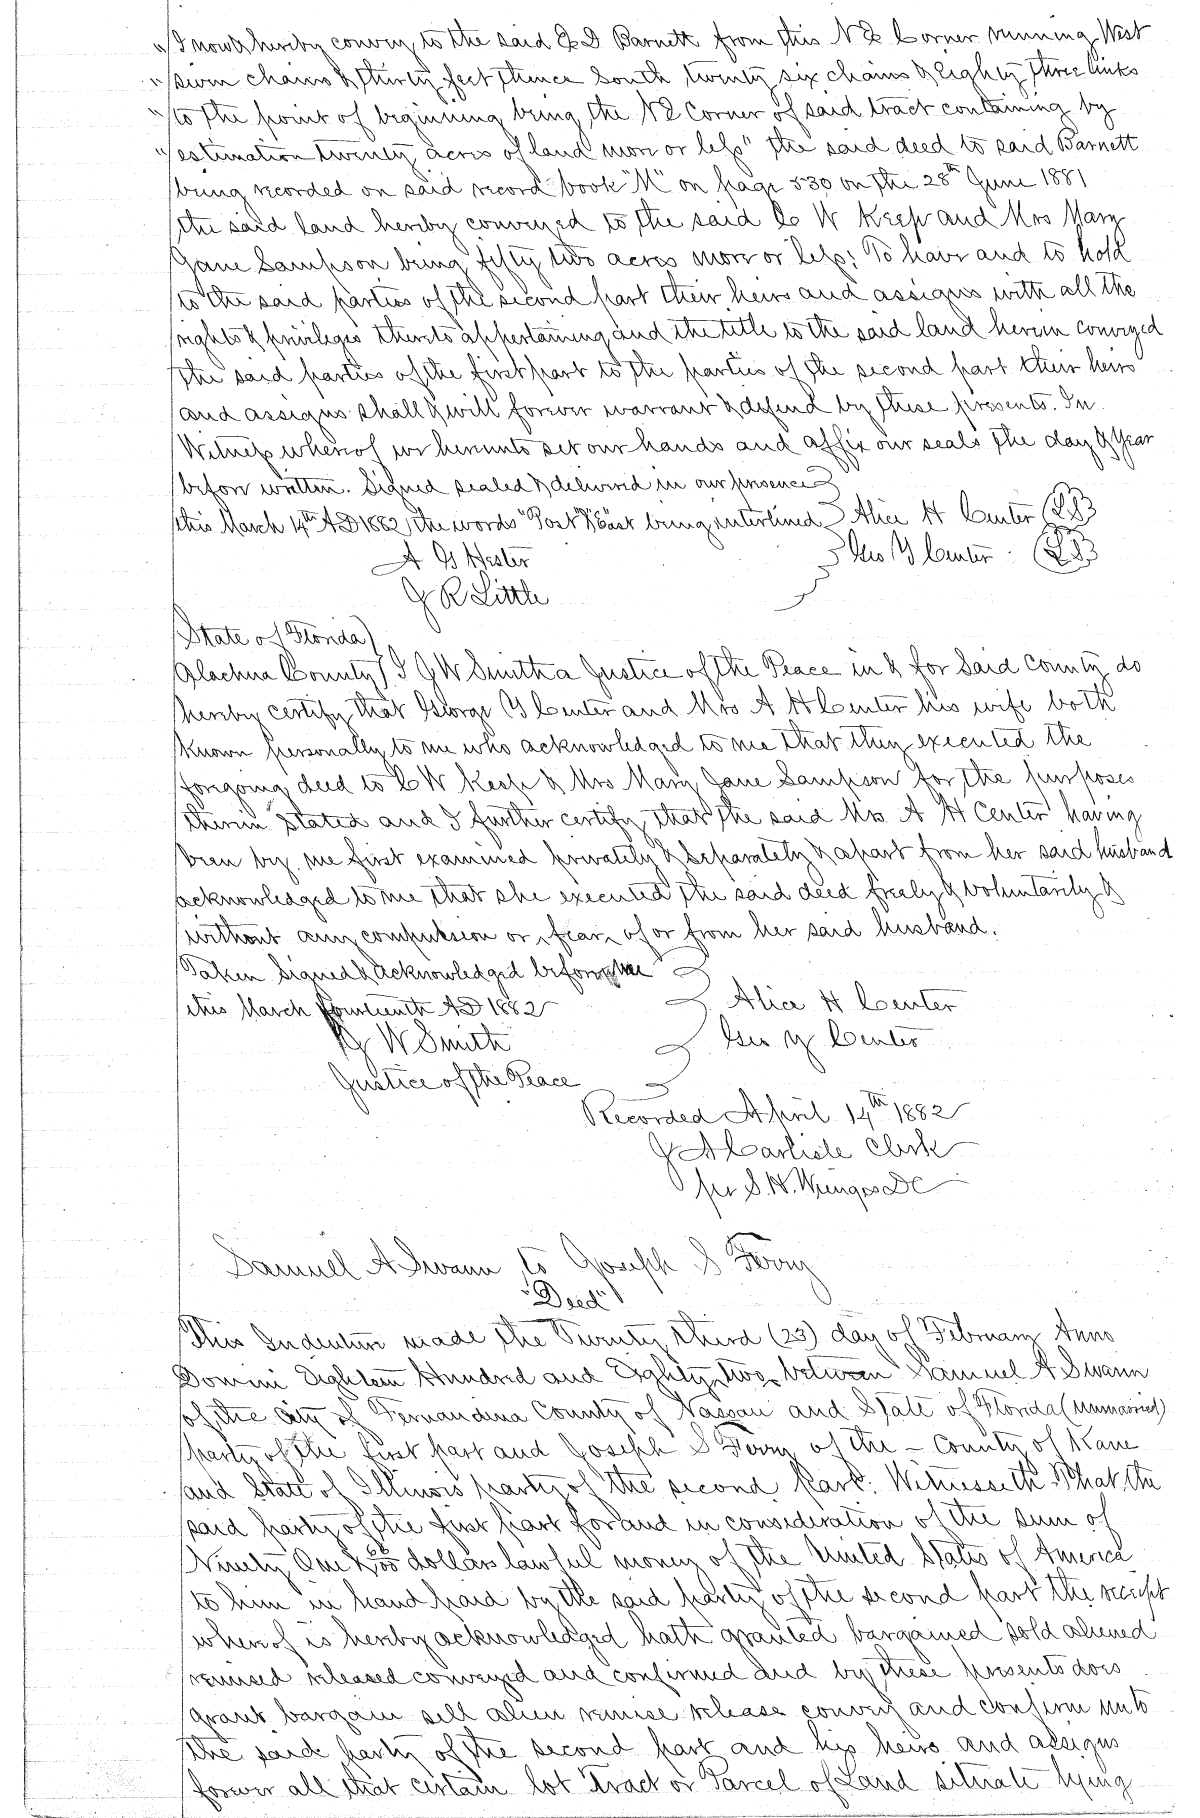 "I now hereby convey to the said E D Barnett from this N E Corner running West
"seven chains & thirty feet thence South twenty six chains & Eighty three links
"to the point of beginning being the N E Corner of said tract containing by
"estimation twenty acres of land more or less" the said deed to said Barnett
being recorded on said record book "M" on page 530 on the 28th June 1881
the said land hereby conveyed to the said C W Keep and Mrs Mary
Jane Sampson being fifty two acres more or less: To have and to hold
to the said parties of the second part their heirs and assigns with all the
rights & privileges thereto appertaining and the title to the said land herein conveyed
the said parties of the first part to the parties of the second part their heirs
and assigns shall & will forever warrant & defend by these presents. In
Witness whereof we hereunto set our hands and affix our seals the day & Year
before written. Signed sealed & delivered in our presence
this March 14th A D 1882, the words "Post" & "East" being interlined Alice H Center (L S)
A G Hester Geo Y Center (L S)
J R Little
State of Florida)
Alachua County) I G W Smith a Justice of the Peace in & for Said County do
hereby certify that George Y Center and Mrs A H Center his wife both
known personally to me who acknowledged to me that they executed the
foregoing deed to C W Keep & Mrs Mary Jane Sampson for the purposes
therein Stated and I further certify that the said Mrs A H Center having
been by me first examined privately & separately & apart from her said husband
acknowledged to me that she executed the said deed freely & voluntarily &
without any compulsion or fear of or from her said husband.
Taken Signed & acknowledged before me
this March fourteenth A D 1882 Alice H Center
G W Smith Geo Y Center
Justice of the Peace
Recorded April 14th 1882
J A Carlisle Clerk
per S. H. DC
Samuel A Swann to Joseph S Ferry
"Deed"
This Indenture made the Twenty third (23) day of February Anno
Domini Eighteen Hundred and Eighty two between Samuel A Swann
of the City of Fernandina County of Nassau and State of Florida (unmarried)
party of the first part and Joseph S Ferry of the - County of Kane
and State of Illinois party of the second Part: Witnesseth That the
said party of the first part for and in consideration of the sum of
Ninety One & 66/100 dollars lawful money of the United States of America
to him in hand paid by the said party of the second part the receipt
whereof is hereby acknowledged hath granted bargained sold aliened
remised released conveyed and confirmed and by these presents does
grant bargain sell alien remise release convey and confirm unto
the said party of the second part and his heirs and assigns
forever all that certain lot Tract or Parcel of Land situate lying